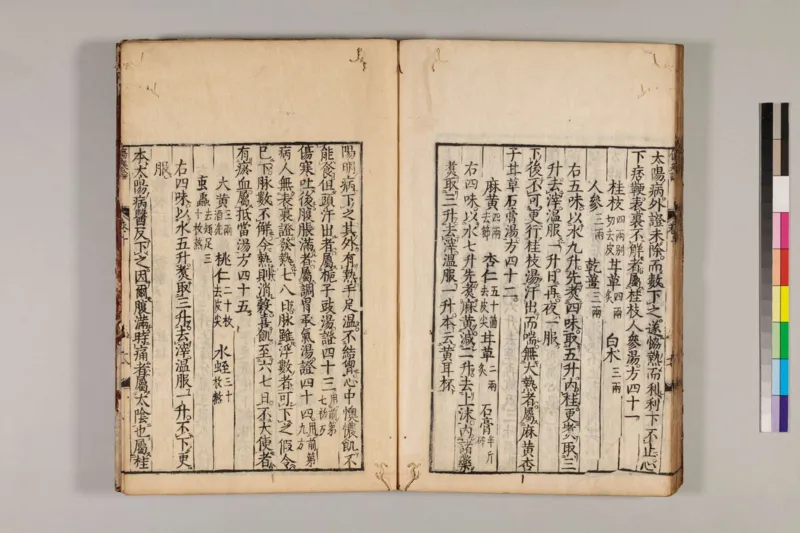 太陽病外證未除而數下之遂恊熱而利利下不止心
下痞鞕表裏不解者屬桂枝人參湯方四十一
桂枝四兩別切去皮 甘草四兩炙 白朮三兩
人參三兩 乾薑三兩
右五味以水九升先煑四味取五升内桂更煑取三
升去滓溫服一升日再夜一服
下後不可更行桂枝湯汗出而喘無大熱者屬麻黄杏
子甘草石膏湯方四十二
麻黄四兩去節 杏仁五十箇去皮尖 甘草二兩炙 石膏半斤碎
右四味以水七升先煑麻黄減二升去上沫内諸藥
煑取三升去滓溫服一升本云黄耳杯
陽明病下之其外有熱手足溫不結胷心中懊憹飢不
能食但頭汗出者屬梔子豉湯證四十三用前第七初方
傷寒吐後腹脹滿者屬調胃承氣湯證四十四用前第九方
病人無表裏證發熱七八日脉雖浮數者可下之假令
已下脉數不解今熱則消穀喜飢至六七日不大便者
有瘀血屬抵當湯方四十五
大黄三兩酒洗 桃仁二十枚去皮尖 水蛭三十枚熬
䖟蟲去翅足三十枚熬
右四味以水五升煑取三升去滓溫服一升不下更
服
本太陽病醫反下之因爾腹滿時痛者屬太陰也屬桂